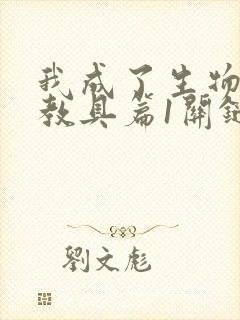 我成了生物
教具篇1關鍵
劉文彪